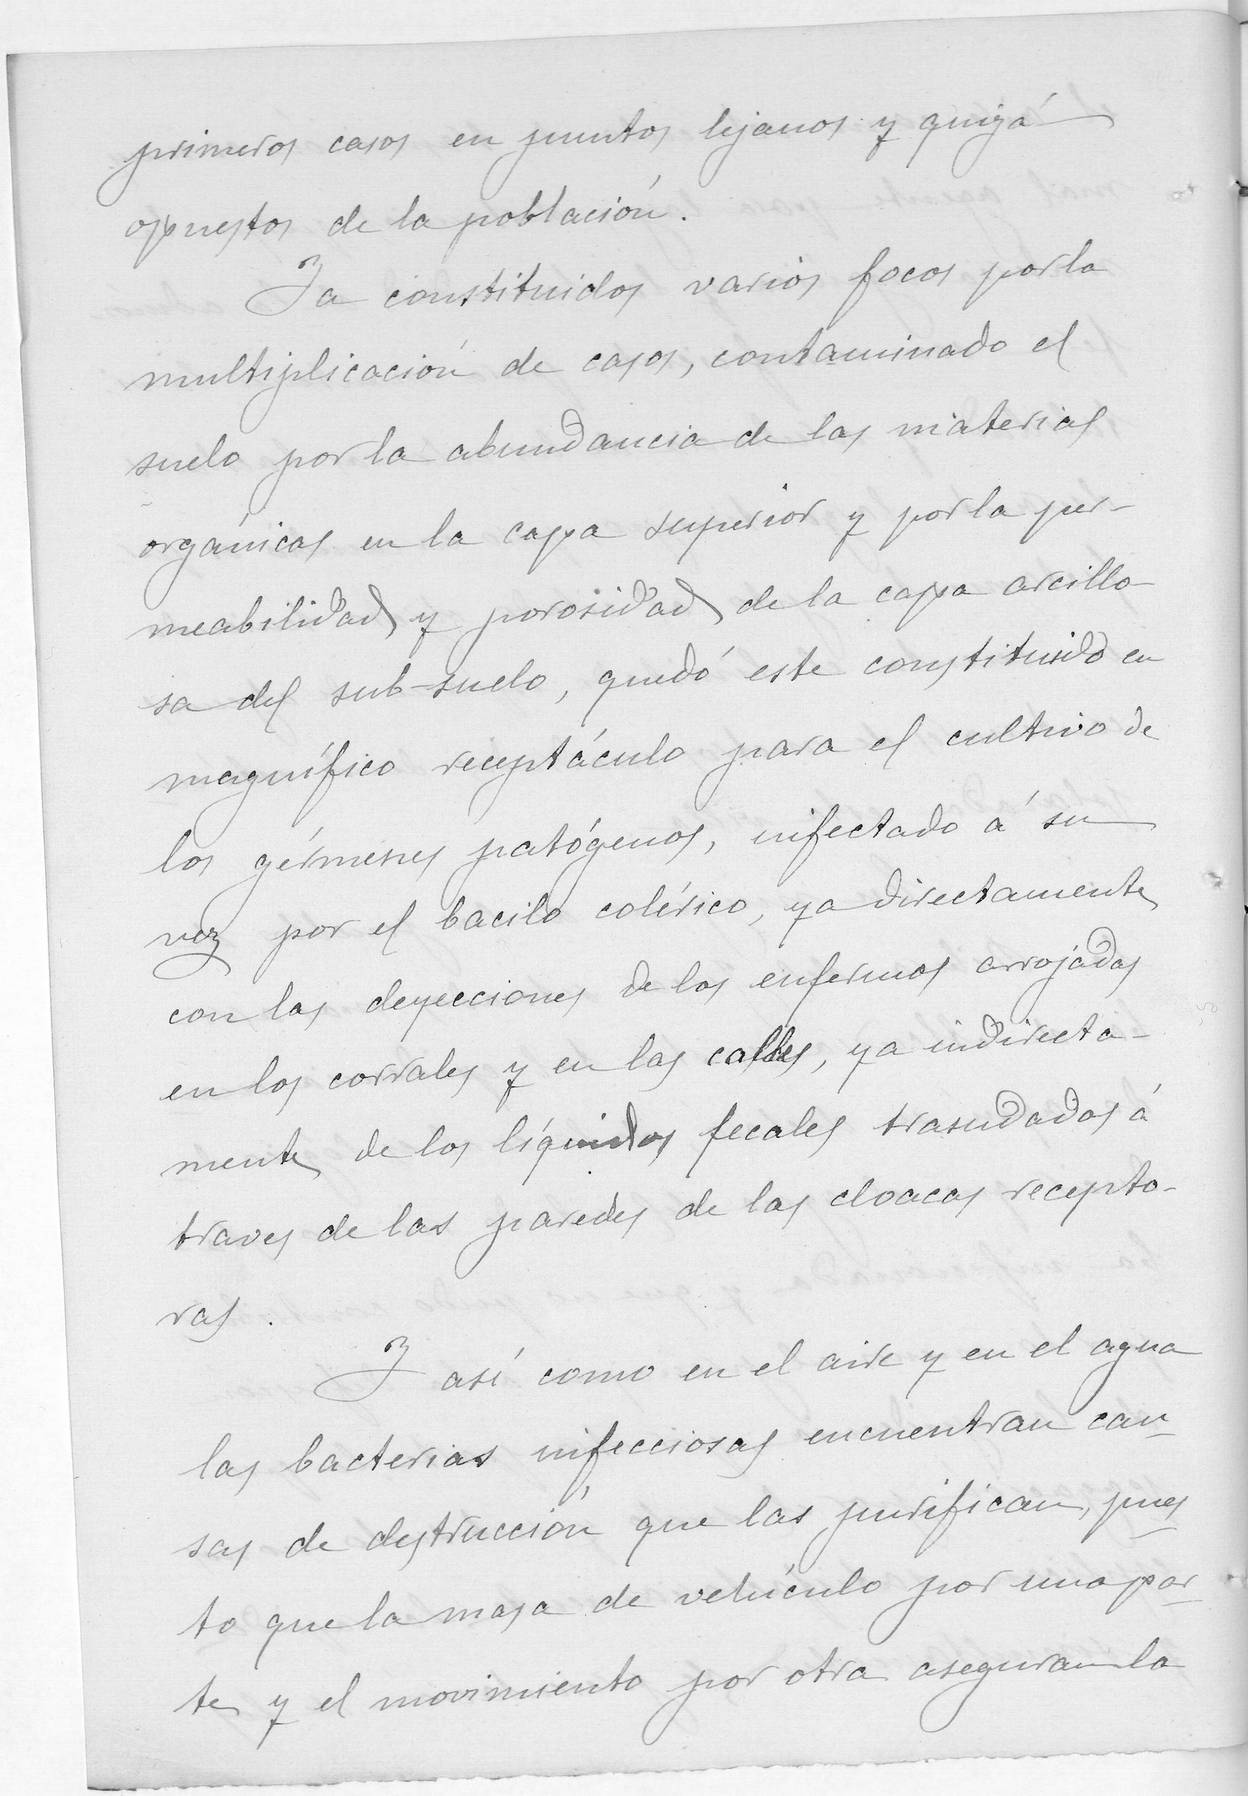 primeros casos en puntos lejanos y quizá
opuestos de la población.
Ya constituidos varios focos por la
multiplicación de casos, contaminado el
suelo por la abundancia de las materias
orgánicas en la capa superior y por la per-
meabilidad y porosidad de la capa arcillo
sa del sub-suelo, quedó este constituido en
magnífico receptáculo para el cultivo de
los gérmenes patógenos, infectado á su
vez por el bacilo colérico, ya directamente
con las deyecciones de los enfermos arrojadas
en los corrales y en las calles, ya indirecta-
mente de los líquidos fecales trasudados á
traves de las paredes de las cloacas recepto-
ras.
Y así como en el aire y en el agua
las bacterias infecciosas encuentran cau-
sas de destrucción que las purifican, pues
to que la masa de vehículo por una par-
te y el movimiento por otra aseguran la